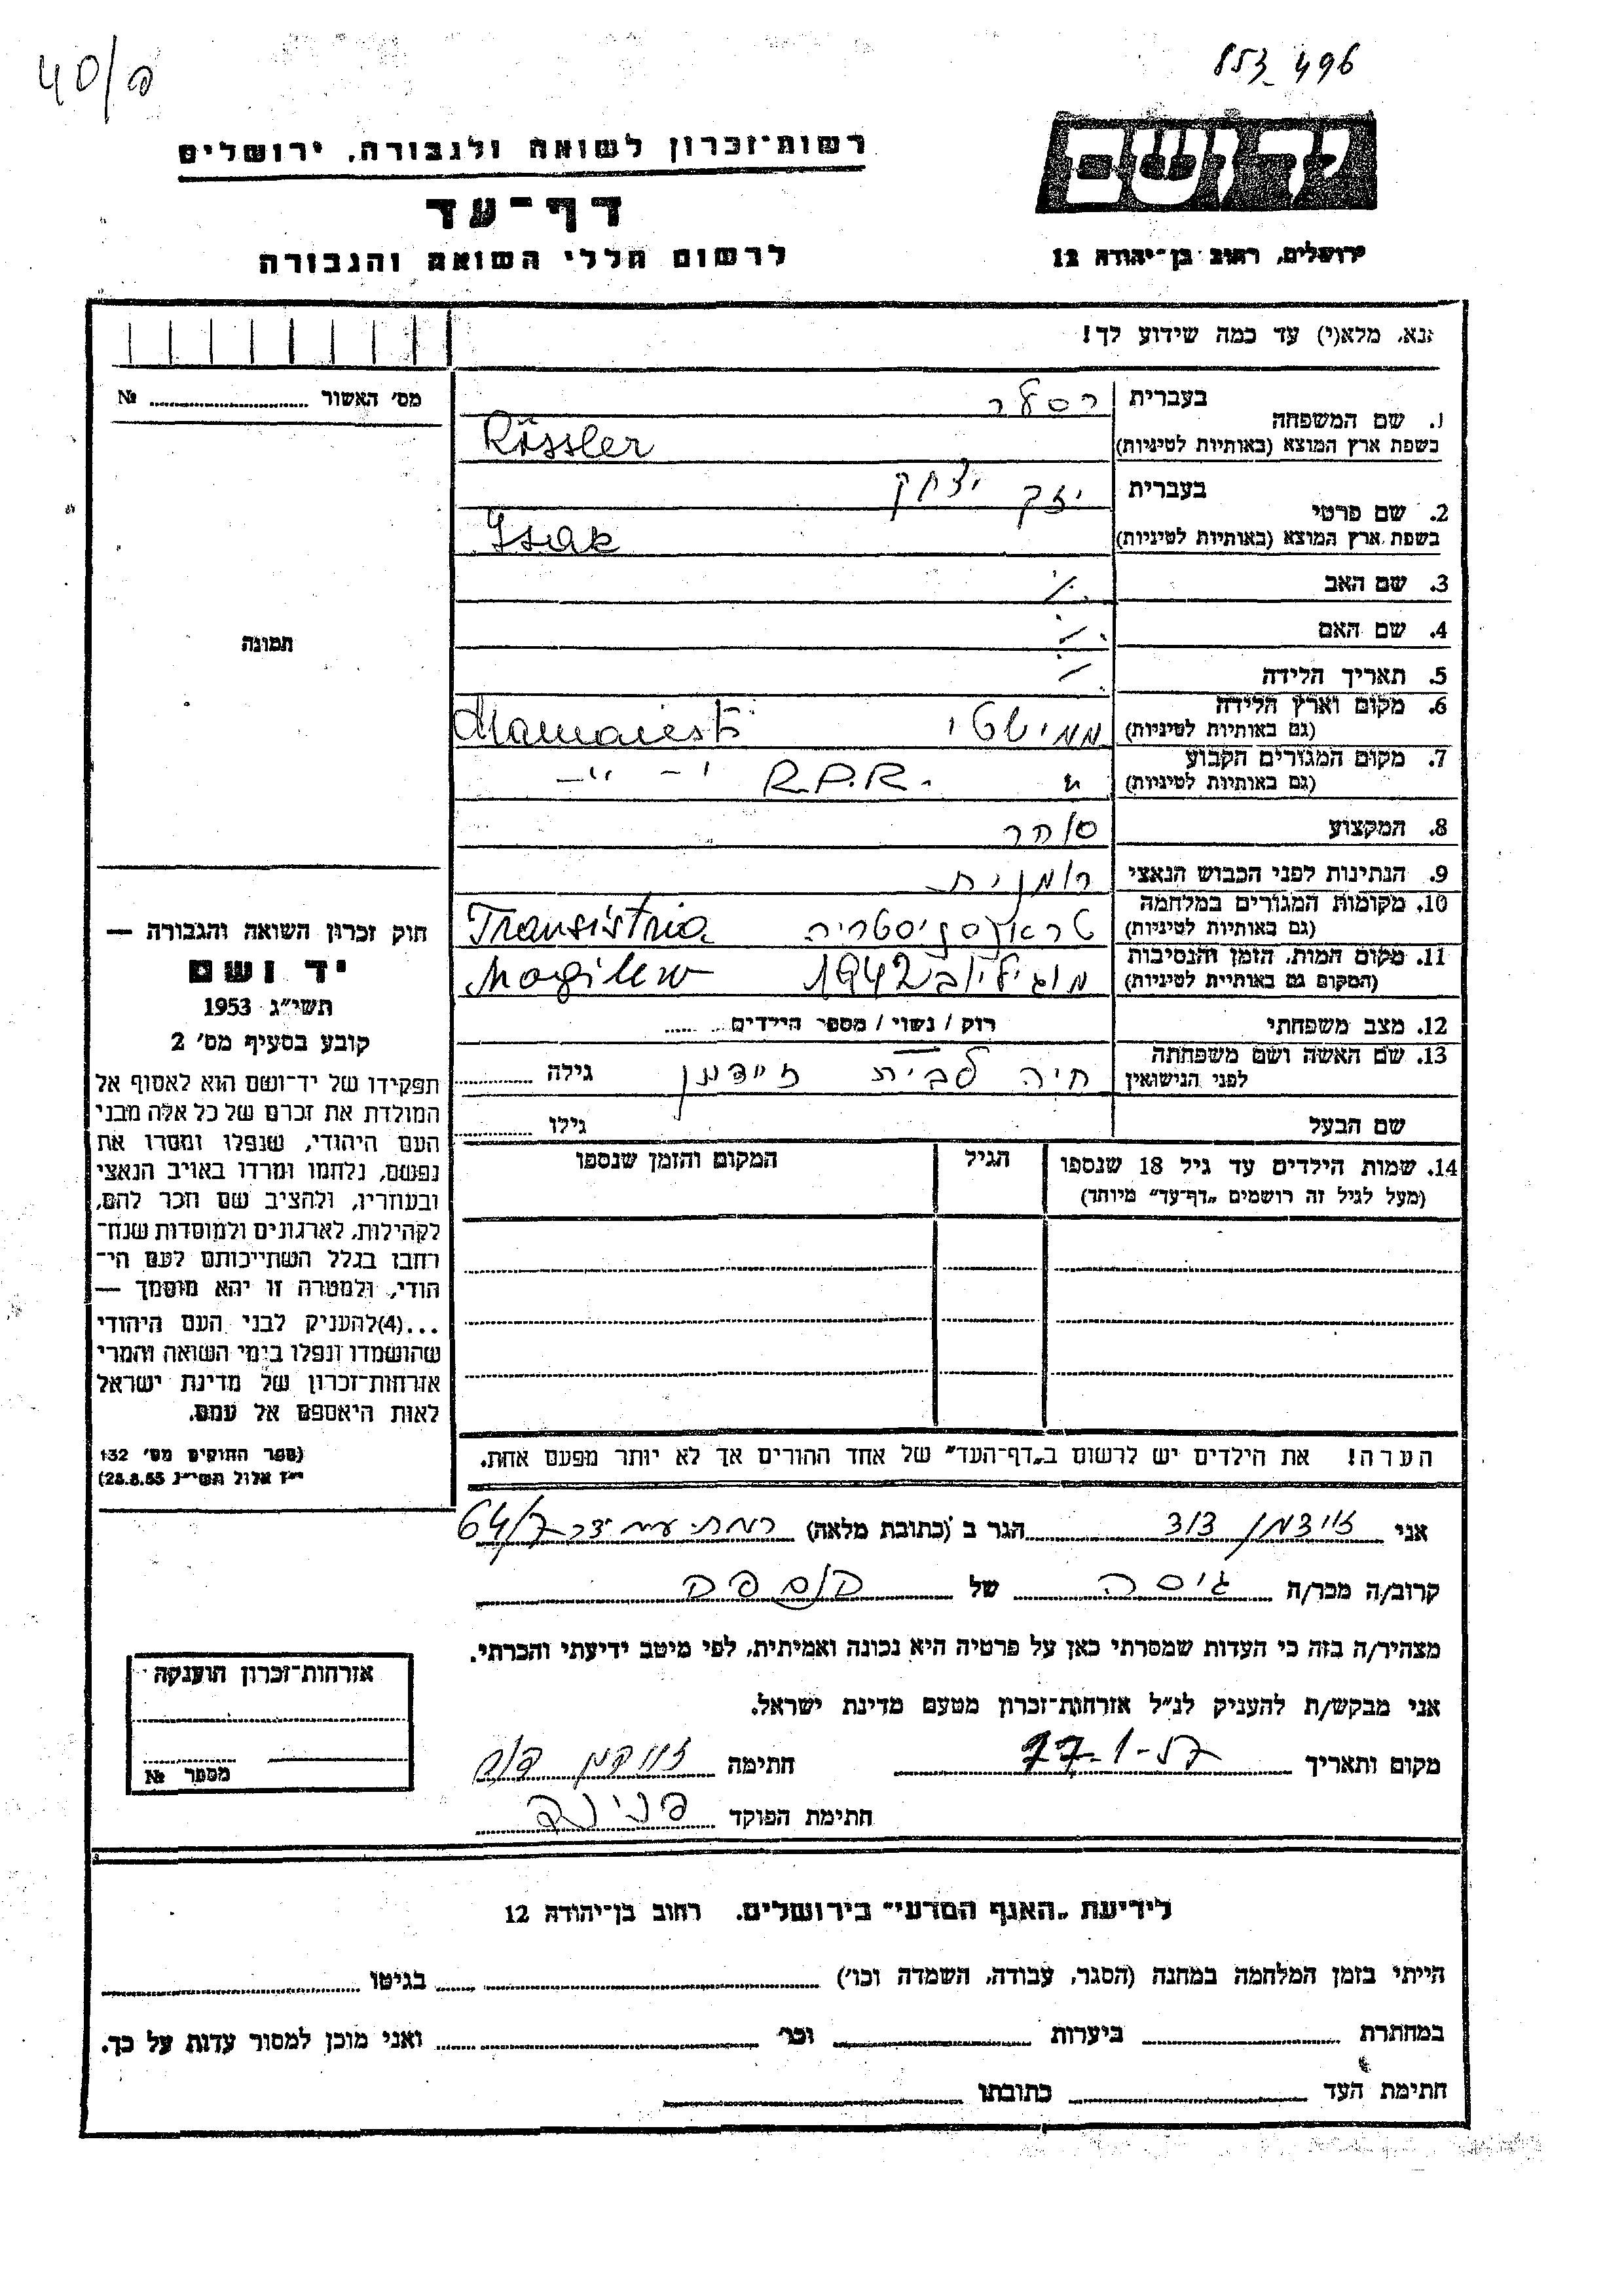 40/פ
853-496
רשות-זכרון לשואה ולגבורה, ירושלים
יד ושם
דף-עד
לרשום חללי השואה והגבורה
ירושלים, רחוב בן-יהודה 12
נא, מלא(י) עד כמה שידוע לך!
מס' האשור № 
1. שם המשפחה
בעברית רסלר
בשפת ארץ המוצא (באותיות לטיניות) Rössler
2. שם פרטי
בעברית יזק יצחק
בשפת ארץ המוצא (באותיות לטיניות) Isak
3. שם האב
4. שם האם
תמונה
5. תאריך הלידה
6. מקום וארץ הלידה
(גם באותיות לטיניות) ממישטי Mamaiesti
7. מקום המגורים הקבוע
(גם באותיות לטיניות) " R.P.R. - " -
8. המקצוע סוחר
9. הנתינות לפני הכבוש הנאצי רומנית
10. מקומות המגורים במלחמה
(גם באותיות לטיניות) טראנסניסטריה Transistria
11. מקום המות, הזמן והנסיבות
(המקום גם באותיית לטיניות) מוגילוב 1942 Mogilew
12. מצב משפחתי רוק / נשוי / מספר הילדים
13. שם האשה ושם משפחתה
לפני הנישואין חיה לבית זיידמן גילה
שם הבעל גילו
14. שמות הילדים עד גיל 18 שנספו הגיל המקום והזמן שנספו
(מעל לגיל זה רושמים "דף-עד" מיוחד)
חוק זכרון השואה והגבורה —
יד ושם
תשי"ג 1953
קובע בסעיף מס' 2
תפקידו של יד-ושם הוא לאסוף אל
המולדת את זכרם של כל אלה מבני
העם היהודי, שנפלו ומסרו את
נפשם, נלחמו ומרדו באויב הנאצי
ובעוזריו, ולהציב שם וזכר להם,
לקהילות, לארגונים ולמוסדות שנח-
רבו בגלל השתייכותם לעם הי-
הודי, ולמטרה זו יהא מוסמך —
...(4)להעניק לבני העם היהודי
שהושמדו ונפלו בימי השואה והמרי
אזרחות-זכרון של מדינת ישראל
לאות היאספם אל עמם.
(ספר החוקים מס' 132
י"ז אלול תשי"ג 28.8.55)
הערה! את הילדים יש לרשום ב"דף-העד" של אחד ההורים אך לא יותר מפעם אחת.
אני זיידמן דוד הגר ב (כתובת מלאה) רמת עמידר 64/7
קרוב/ה מכר/ה גיסה של הנספה
מצהיר/ה בזה כי העדות שמסרתי כאן על פרטיה היא נכונה ואמיתית, לפי מיטב ידיעתי והכרתי.
אני מבקש/ת להעניק לנ"ל אזרחות-זכרון מטעם מדינת ישראל.
מקום ותאריך 77-1-57 חתימה זיידמן דוד
חתימת הפוקד
אזרחות-זכרון הוענקה
מספר №
לידיעת "האגף המדעי" בירושלים. רחוב בן-יהודה 12
הייתי בזמן המלחמה במחנה (הסגר, עבודה, השמדה וכו') בגיטו
במחתרת ביערות וכו' ואני מוכן למסור עדות על כך.
חתימת העד כתובתו